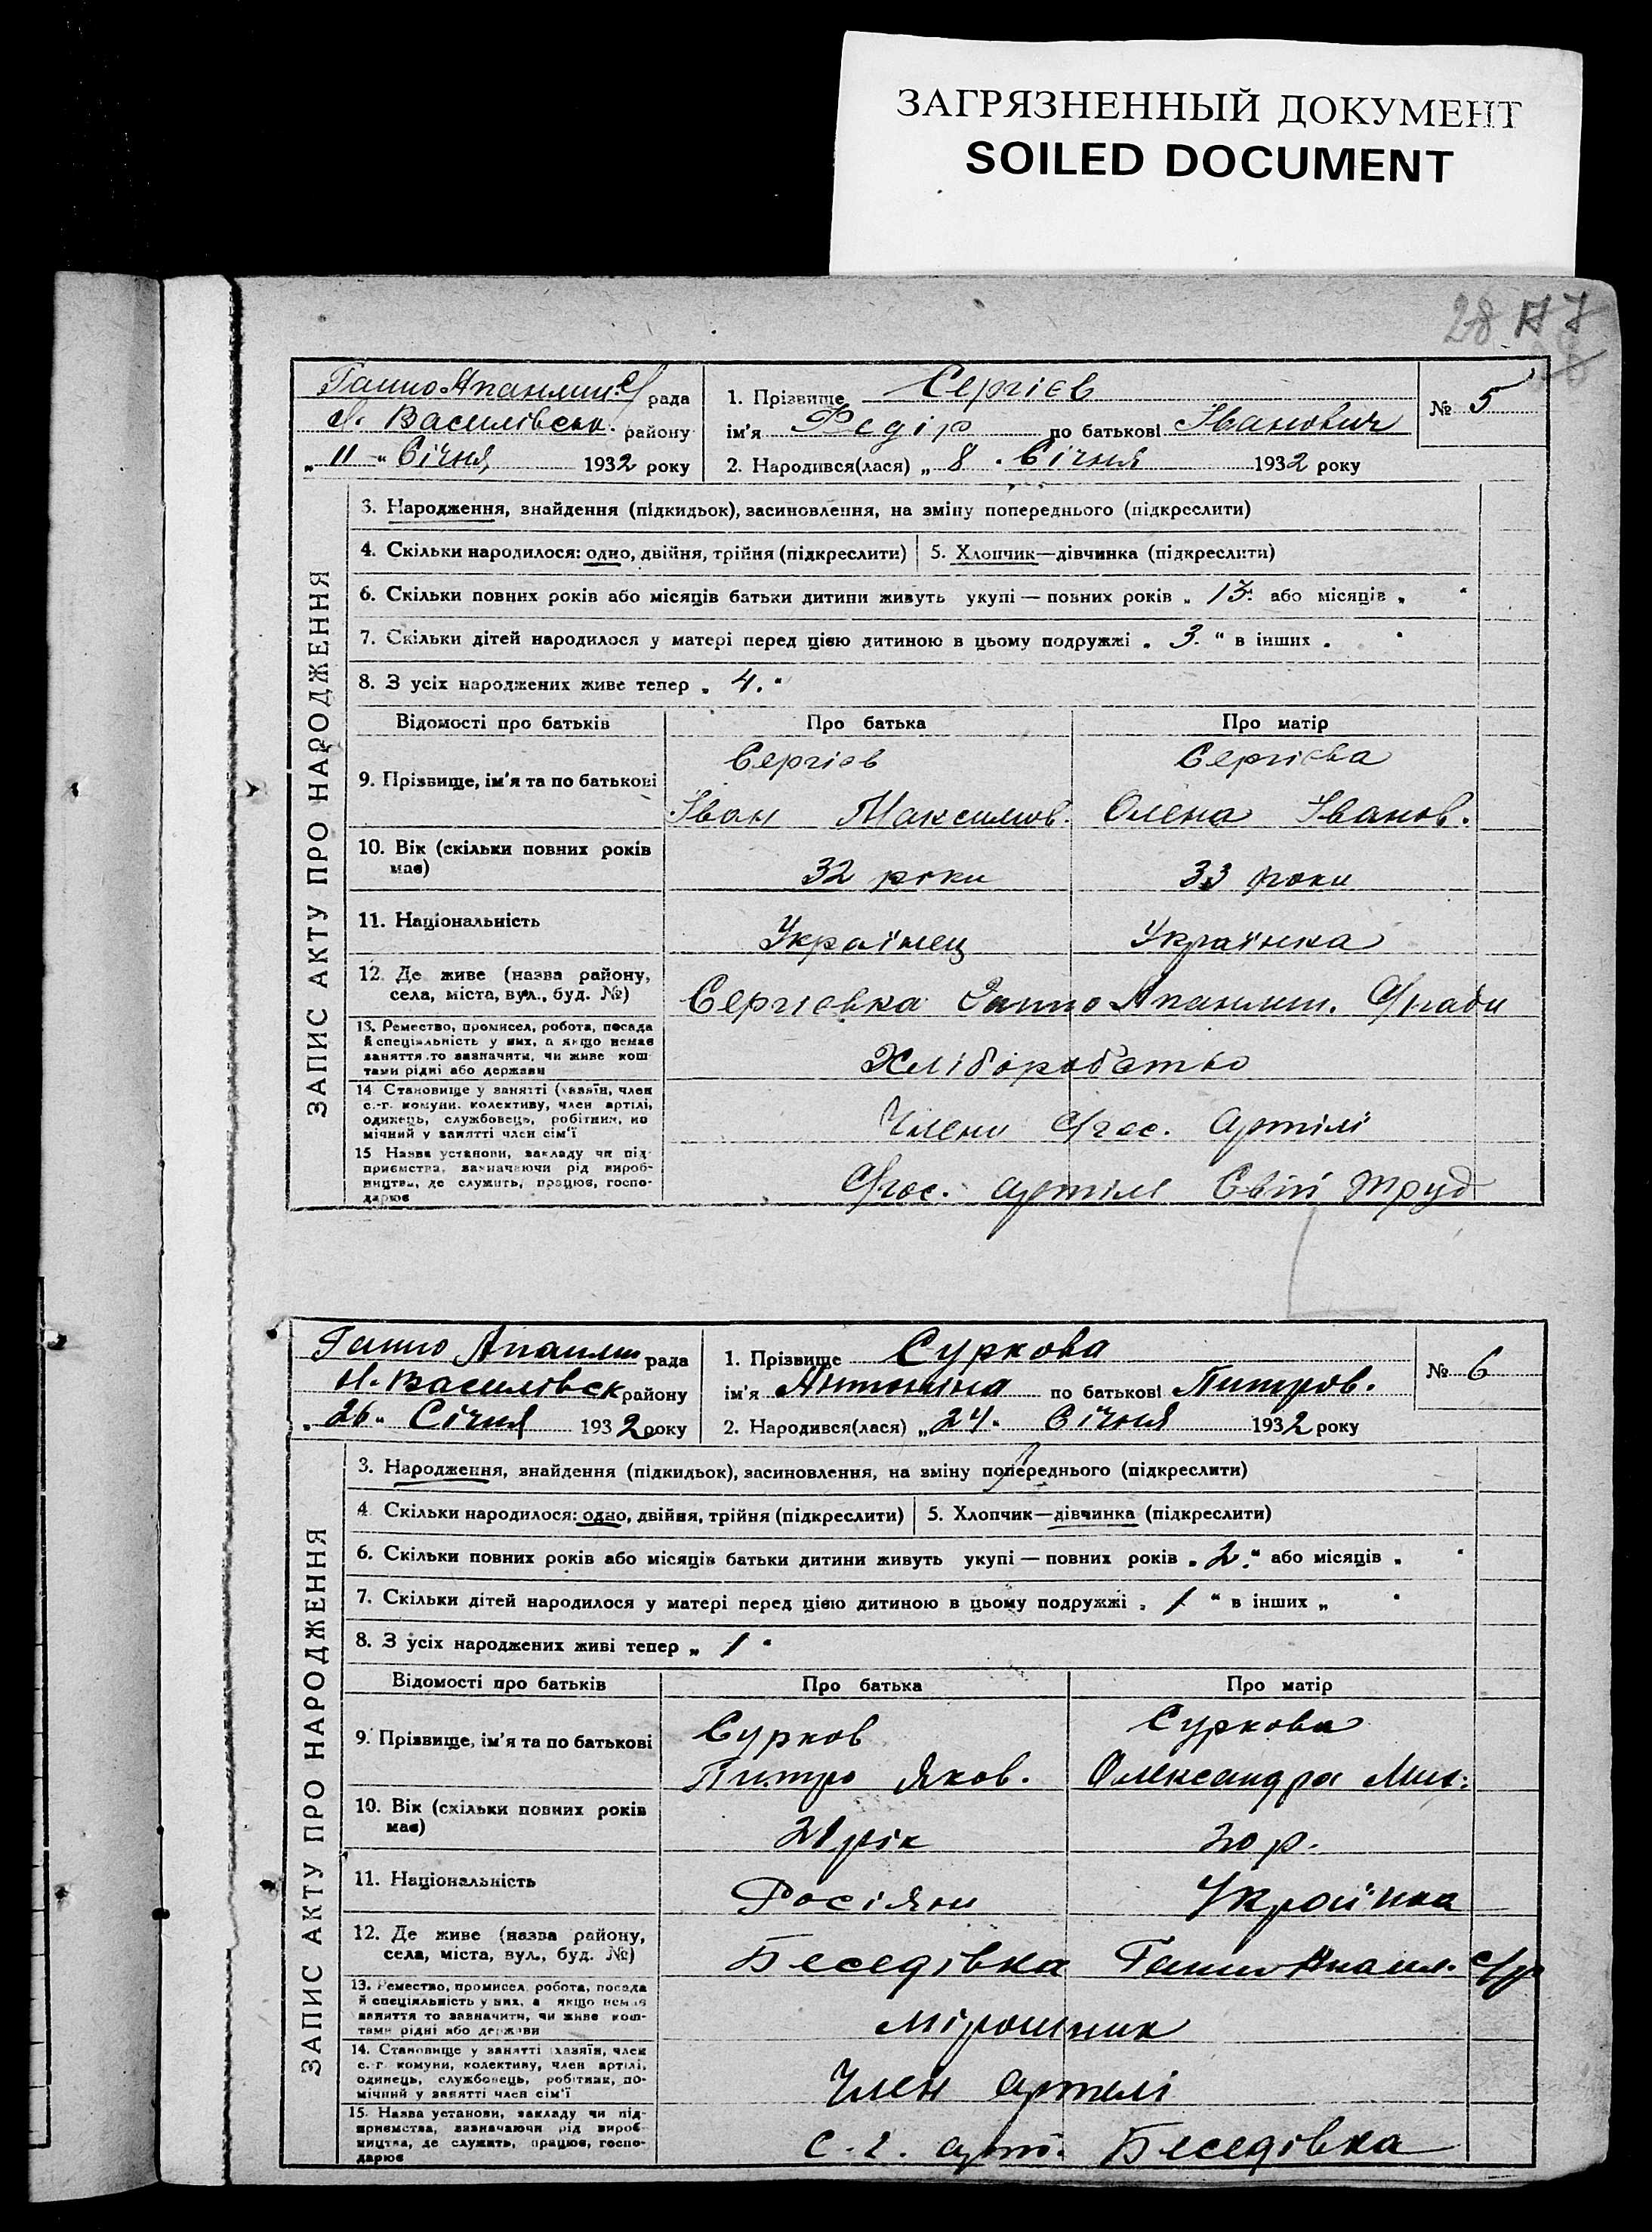 ЗАГРЯЗНЕННЫЙ ДОКУМЕНТ
SOILED DOCUMENT
28
рада
Василівськ. району
„ 11 " Січня 1932 року
1. Прізвище Сергієв
ім'я Федір по батькові Іванович
2. Народився(лася) „ 8 " Січня 1932 року
№ 5
ЗАПИС АКТУ ПРО НАРОДЖЕННЯ
3. Народження, знайдення (підкидьок), засиновлення, на зміну попереднього (підкреслити)
4. Скільки народилося: одно, двійня, трійня (підкреслити) 5. Хлопчик—дівчинка (підкреслити)
6. Скільки повних років або місяців батьки дитини живуть укупі — повних років „ 13. або місяців „ "
7. Скільки дітей народилося у матері перед цією дитиною в цьому подружжі „ 3. " в інших „ "
8. З усіх народжених живе тепер „ 4. "
Відомості про батьків Про батька Про матір
9. Прізвище, ім'я та по батькові
Сергієв Сергієва
Іван Максимов. Олена Іванов.
10. Вік (скільки повних років має)
32 роки 33 роки
11. Національність
Українец Українка
12. Де живе (назва району, села, міста, вул., буд. №)
Сергієвка Ганно Апанлин. С/ради
13. Ремество, промисел, робота, посада й спеціяльність у них, а якщо немає заняття то зазначити, чи живе коштами рідні або держави
Хліборобство
14. Становище у занятті (хазяїн, член с.-г. комуни, колективу, член артілі, одинець, службовець, робітник, помічний у занятті член сім'ї
Члени С/гос. Артілі
15. Назва установи, закладу чи підприємства, зазначаючи рід виробництва, де служить, працює, господарює
С/гос. артілі Свій труд
рада
Н. Василівськ району
„ 26 " Січня 1932 року
1. Прізвище Суркова
ім'я Антоніна по батькові Питров.
2. Народився(лася) „ 24. Січня 1932 року
№ 6
ЗАПИС АКТУ ПРО НАРОДЖЕННЯ
3. Народження, знайдення (підкидьок), засиновлення, на зміну попереднього (підкреслити)
4. Скільки народилося: одно, двійня, трійня (підкреслити) 5. Хлопчик—дівчинка (підкреслити)
6. Скільки повних років або місяців батьки дитини живуть укупі — повних років „ 2. " або місяців „ "
7. Скільки дітей народилося у матері перед цією дитиною в цьому подружжі „ 1 " в інших „ "
8. З усіх народжених живі тепер „ 1 "
Відомості про батьків Про батька Про матір
9. Прізвище, ім'я та по батькові
Сурков Суркова
Питро Яков. Олександра Мих.
10. Вік (скільки повних років має)
21 рік 20 р.
11. Національність
Росіяни Українка
12. Де живе (назва району, села, міста, вул., буд. №)
Беседівка
13. Ремество, промисел, робота, посада й спеціяльність у них, а якщо немає заняття то зазначити, чи живе коштами рідні або держави
Мірошник
14. Становище у занятті (хазяїн, член с.-г. комуни, колективу, член артілі, одинець, службовець, робітник, помічний у занятті член сім'ї
Член артілі
15. Назва установи, закладу чи підприємства, зазначаючи рід виробництва, де служить, працює, господарює
С.-г. арт. Беседівка